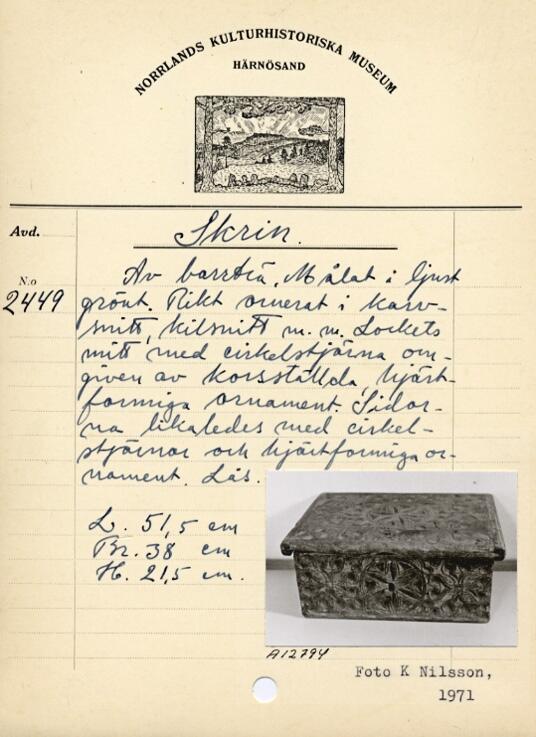 NORRLANDS KULTURHISTORISKA MUSEUM
HÄRNÖSAND
Avd.
Skrin.
N:o
2449
Av barrträ. Målat i ljust
grönt. Rikt ornerat i karv-
snitt, kilsnitt m. m. Lockets
mitt med cirkelstjärna om-
given av korsställda, hjärt-
formiga ornament. Sidor-
na likaledes med cirkel-
stjärnor och hjärtformiga or-
nament. Lås.
L. 51,5 cm
Br. 38 cm
H. 21,5 cm.
A12794
Foto K Nilsson,
1971